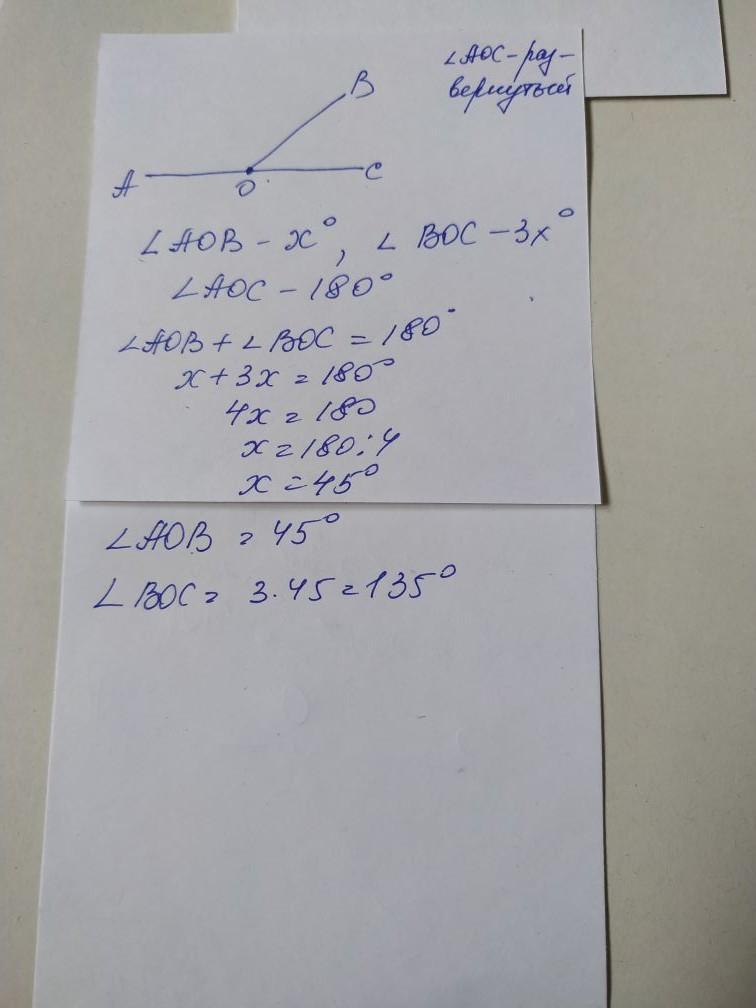 ∠AOC-раз-
вернутый
B
A
O
C
∠AOB - x°, ∠BOC - 3x°
∠AOC - 180°
∠AOB + ∠BOC = 180°
x + 3x = 180°
4x = 180
x = 180 : 4
x = 45°
∠AOB = 45°
∠BOC = 3 · 45 = 135°